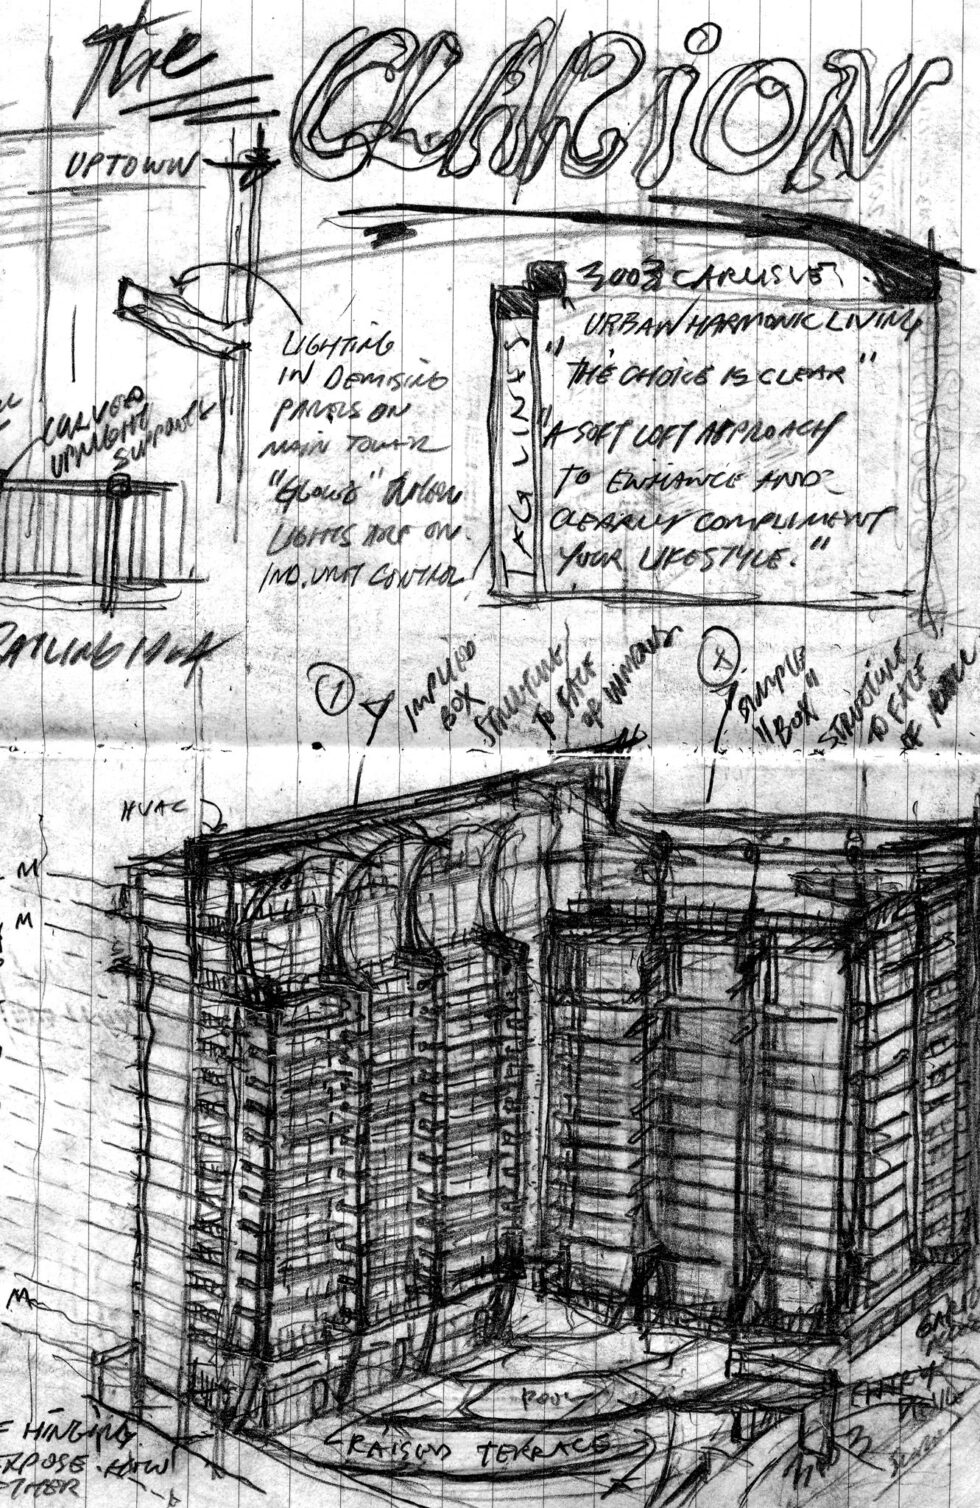 the
CLARION
UPTOWN
3003 CARLISLE
"URBAN HARMONIC LIVING
"THE CHOICE IS CLEAR"
"A SOFT LOFT APPROACH
TO ENHANCE AND
CLEARLY COMPLIMENT
YOUR LIFESTYLE."
TAG LINES
LIGHTING
IN DEMISING
PANELS ON
MAIN TOWER
"GLOWS" WHEN
LIGHTS ARE ON.
IND. UNIT CONTROL!
CURVED
UPRIGHT
SUPPORTS
RAILING IDEA
1
IMPLIED
BOX
STRUCTURE
TO FACE
OF WINDOWS
SIMPLE
"BOX"
STRUCTURE
TO FACE
OF
HVAC
M
M
M
POOL
RAISED TERRACE
ENTRY
HINGING
EXPOSE HOW